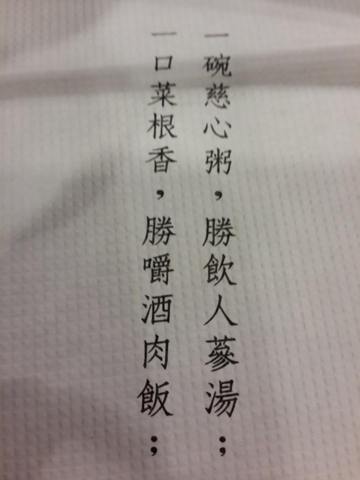 一碗慈心粥，勝飲人蔘湯；
一口菜根香，勝嚼酒肉飯；